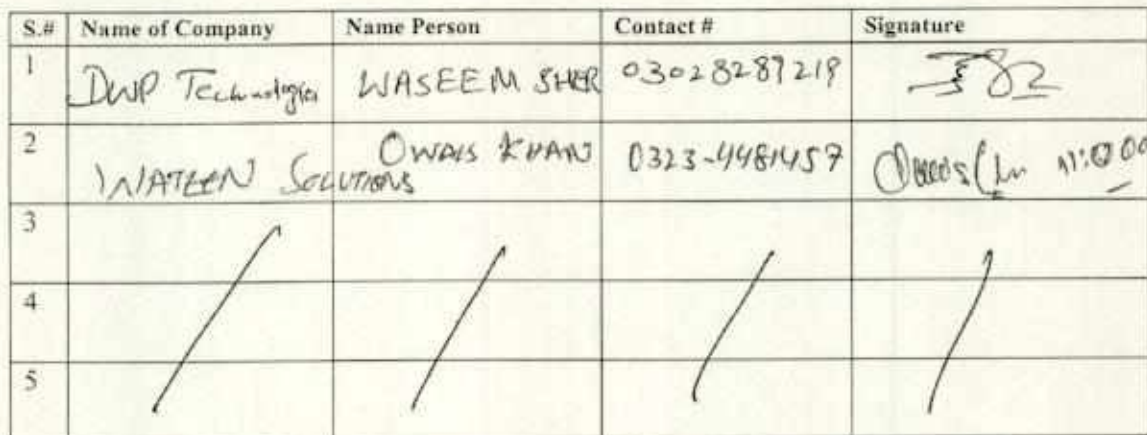 S.# Name of Company Name Person Contact # Signature
1 DWP Technologies WASEEM SHER 03028289219
2 WATEEN SOLUTIONS OWAIS KHAN 0323-4481457
3
4
5